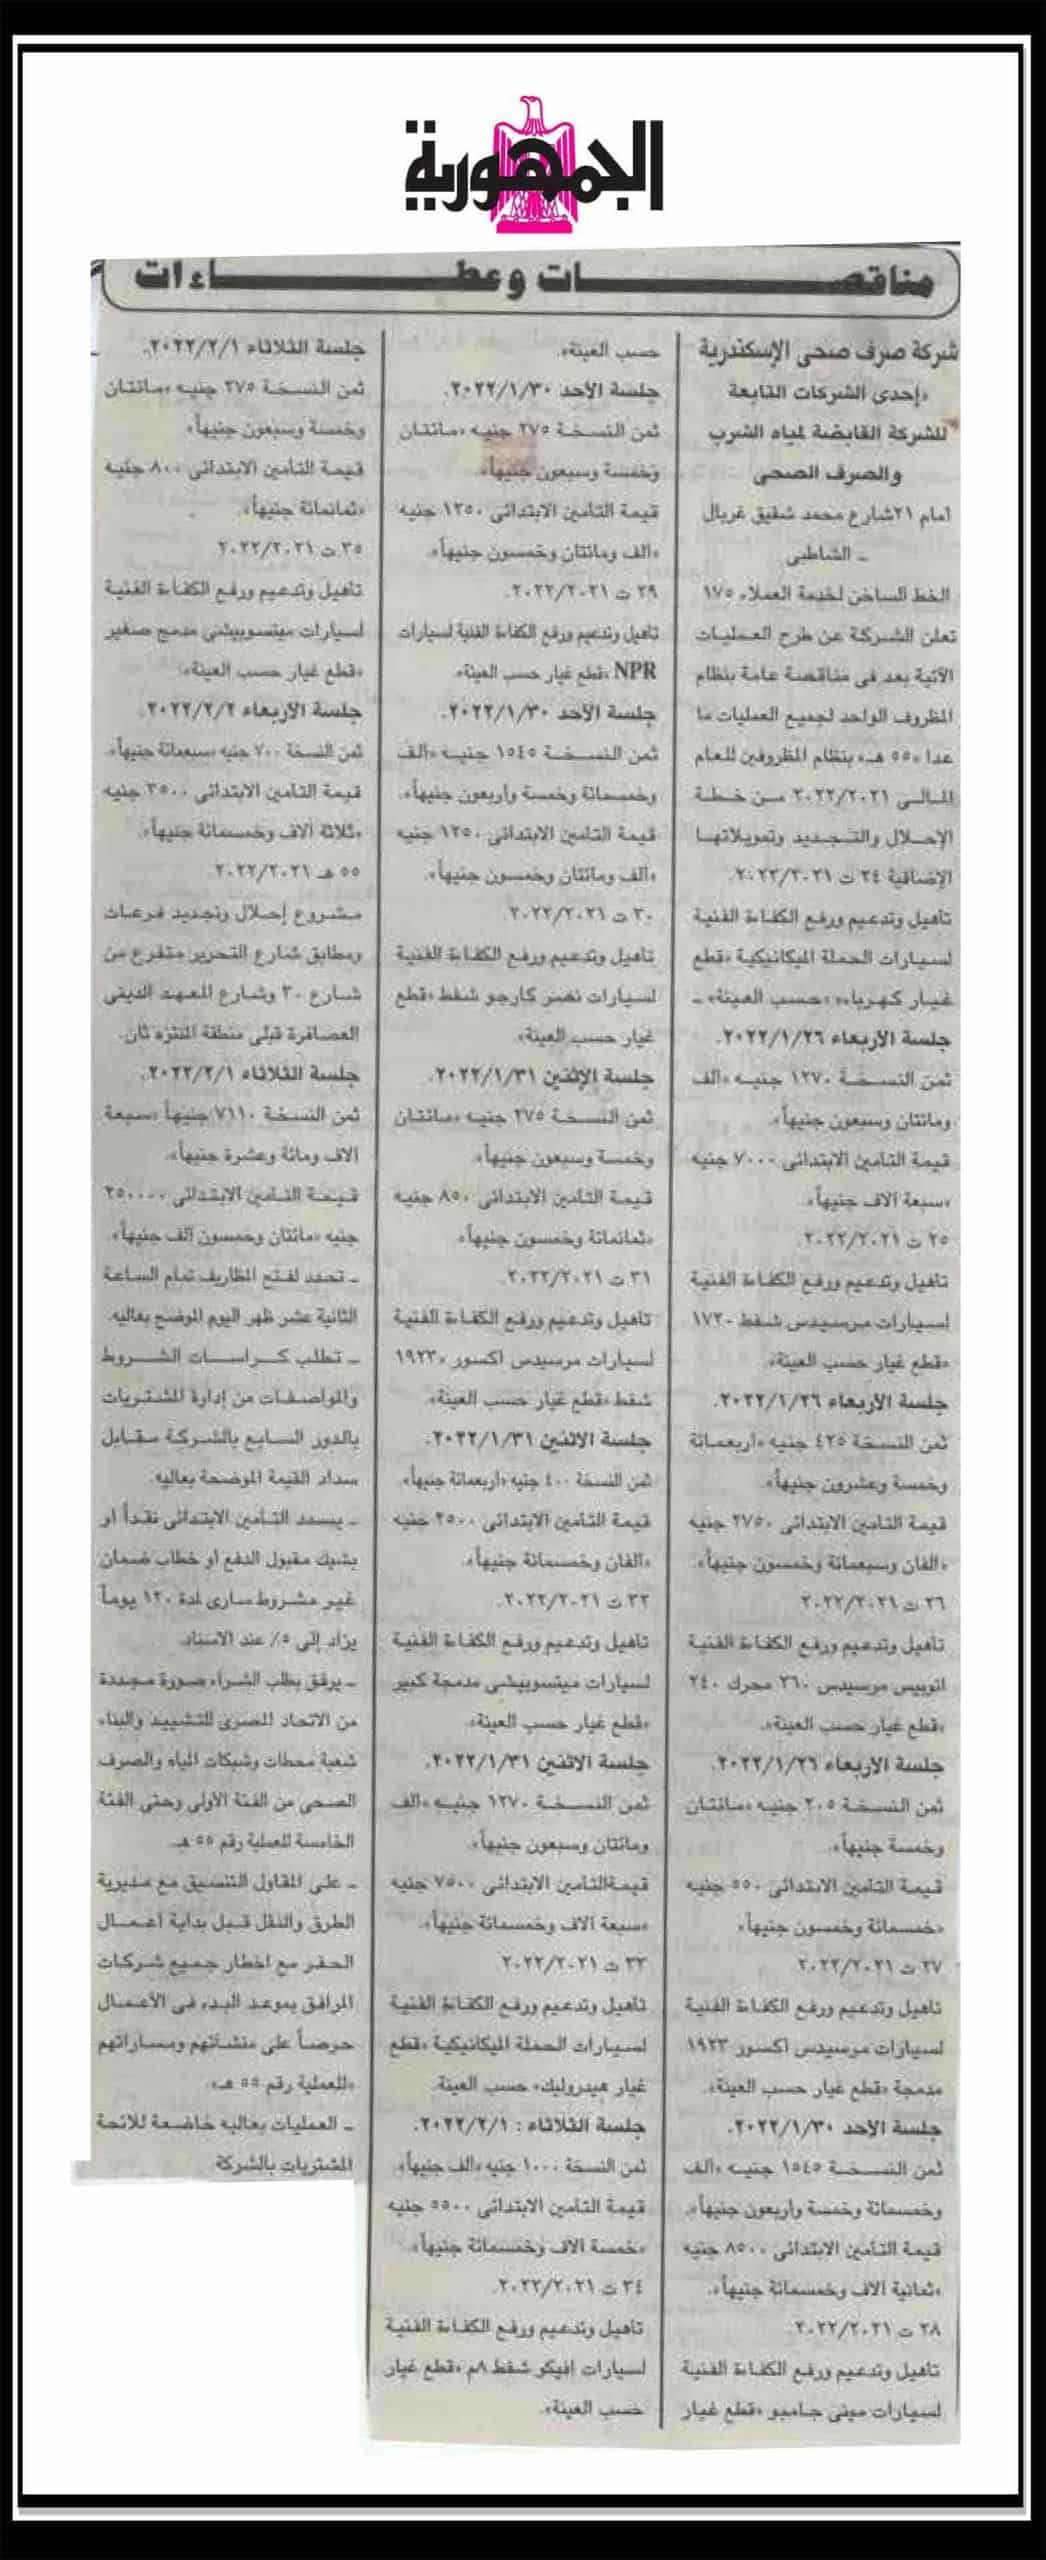 الجمهورية
مناقصات وعطاءات
شركة صرف صحى الإسكندرية
«إحدى الشركات التابعة
للشركة القابضة لمياه الشرب
والصرف الصحى
امام ٢١ شارع محمد شفيق غربال
ـ الشاطبى
الخط الساخن لخدمة العملاء ١٧٥
تعلن الشركة عن طرح العمليات
الآتية بعد فى مناقصة عامة بنظام
المظروف الواحد لجميع العمليات ما
عدا «٥٥ هـ» بنظام المظروفين للعام
المالى ٢٠٢٢/٢٠٢١ من خطة
الإحلال والتجديد وتمويلاتها
الإضافية ٢٤ ت ٢٠٢٢/٢٠٢١.
تأهيل وتدعيم ورفع الكفاءة الفنية
لسيارات الحملة الميكانيكية «قطع
غيار كهرباء» «حسب العينة» ـ
جلسة الأربعاء ٢٠٢٢/١/٢٦.
ثمن النسخة ١٢٧٠ جنيه «الف
ومائتان وسبعون جنيهاً».
قيمة التامين الابتدائى ٧٠٠٠ جنيه
«سبعة آلاف جنيهاً».
٢٥ ت ٢٠٢٢/٢٠٢١.
تاهيل وتدعيم ورفع الكفاءة الفنية
لسيارات مرسيدس شفط ١٧٢٠
«قطع غيار حسب العينة»
جلسة الأربعاء ٢٠٢٢/١/٢٦.
ثمن النسخة ٤٢٥ جنيه «أربعمائة
وخمسة وعشرون جنيهاً».
قيمة التامين الابتدائى ٢٧٥٠ جنيه
«الفان وسبعمائة وخمسون جنيهاً».
٢٦ ت ٢٠٢٢/٢٠٢١
تأهيل وتدعيم ورفع الكفاءة الفنية
اتوبيس مرسيدس ٣٦٠ محرك ٢٤٠
«قطع غيار حسب العينة».
جلسة الأربعاء ٢٠٢٢/١/٢٦.
ثمن النسخة ٢٠٥ جنيه «مائتان
وخمسة جنيهاً».
قيمة التامين الابتدائى ٥٥٠ جنيه
«خمسمائة وخمسون جنيهاً»
٢٧ ت ٢٠٢٢/٢٠٢١
تاهيل وتدعيم ورفع الكفاءة الفنية
لسيارات مرسيدس اكسور ١٩٢٣
مدمجة «قطع غيار حسب العينة».
جلسة الأحد ٢٠٢٢/١/٣٠.
ثمن النسخة ١٥٤٥ جنيه «الف
وخمسمائة وخمسة واربعون جنيهاً».
قيمة التأمين الابتدائى ٨٥٠٠ جنيه
«ثمانية آلاف وخمسمائة جنيهاً».
٢٨ ت ٢٠٢٢/٢٠٢١.
تأهيل وتدعيم ورفع الكفاءة الفنية
لسيارات مينى جامبو «قطع غيار
حسب العينة».
جلسة الأحد ٢٠٢٢/١/٣٠.
ثمن النسخة ٢٧٥ جنيه «مائتان
وخمسة وسبعون جنيهاً».
قيمة التامين الابتدائى ١٢٥٠ جنيه
«الف ومائتان وخمسون جنيهاً».
٢٩ ت ٢٠٢٢/٢٠٢١.
تأهيل وتدعيم ورفع الكفاءة الفنية لسيارات
NPR «قطع غيار حسب العينة».
جلسة الأحد ٢٠٢٢/١/٣٠.
ثمن النسخة ١٥٤٥ جنيه «الف
وخمسمائة وخمسة وأربعون جنيهاً».
قيمة التامين الابتدائى ١٢٥٠ جنيه
«الف ومائتان وخمسون جنيهاً».
٣٠ ت ٢٠٢٢/٢٠٢١.
تأهيل وتدعيم ورفع الكفاءة الفنية
لسيارات نصر كارجو شفط «قطع
غيار حسب العينة»
جلسة الإثنين ٢٠٢٢/١/٣١.
ثمن النسخة ٢٧٥ جنيه «مائتان
وخمسة وسبعون جنيهاً».
قيمة التامين الابتدائى ٨٥٠ جنيه
«ثمانمائة وخمسون جنيهاً»
٣١ ت ٢٠٢٢/٢٠٢١.
تأهيل وتدعيم ورفع الكفاءة الفنية
لسيارات مرسيدس اكسور «١٩٢٣
شفط «قطع غيار حسب العينة».
جلسة الاثنين ٢٠٢٢/١/٣١.
ثمن النسخة ٤٠٠ جنيه «أربعمائة جنيهاً».
قيمة التامين الابتدائى ٢٥٠٠ جنيه
«الفان وخمسمائة جنيهاً».
٣٢ ت ٢٠٢٢/٢٠٢١.
تأهيل وتدعيم ورفع الكفاءة الفنية
لسيارات ميتسوبيشى مدمجة كبير
«قطع غيار حسب العينة».
جلسة الاثنين ٢٠٢٢/١/٣١.
ثمن النسخة ١٢٧٠ جنيه «الف
ومائتان وسبعون جنيهاً».
قيمةالتامين الابتدائى ٧٥٠٠ جنيه
«سبعة آلاف وخمسمائة جنيهاً».
٣٣ ت ٢٠٢٢/٢٠٢١
تأهيل وتدعيم ورفع الكفاءة الفنية
لسيارات الحملة الميكانيكية «قطع
غيار هيدروليك» حسب العينة.
جلسة الثلاثاء : ٢٠٢٢/٢/١.
ثمن النسخة ١٠٠٠ جنيه «الف جنيهاً».
قيمة التامين الابتدائى ٥٥٠٠ جنيه
«خمسة آلاف وخمسمائة جنيهاً».
٣٤ ت ٢٠٢٢/٢٠٢١.
تاهيل وتدعيم ورفع الكفاءة الفنية
لسيارات افيكو شفط ٨م «قطع غيار
حسب العينة».
جلسة الثلاثاء ٢٠٢٢/٢/١.
ثمن النسخة ٢٧٥ جنيه «مائتان
وخمسة وسبعون جنيهاً».
قيمة التأمين الابتدائى ٨٠٠ جنيه
«ثمانمائة جنيهاً».
٣٥ ت ٢٠٢٢/٢٠٢١
تأهيل وتدعيم ورفع الكفاءة الفنية
لسيارات ميتسوبيشى مدمج صغير
«قطع غيار حسب العينة».
جلسة الأربعاء ٢٠٢٢/٢/٢.
ثمن النسخة ٧٠٠ جنيه «سبعمائة جنيهاً».
قيمة التامين الابتدائى ٣٥٠٠ جنيه
«ثلاثة آلاف وخمسمائة جنيهاً».
٥٥ هـ ٢٠٢٢/٢٠٢١.
مشروع إحلال وتجديد فرعات
ومطابق شارع التحرير متفرع من
شارع ٣٠ وشارع المعهد الدينى
العصافرة قبلى منطقة المنتزه ثان.
جلسة الثلاثاء ٢٠٢٢/٢/١.
ثمن النسخة ٧١١٠ جنيهاً «سبعة
آلاف ومائة وعشرة جنيهاً».
قيمة التامين الابتدائى ٢٥٠٠٠٠
جنيه «مائتان وخمسون الف جنيهاً».
ـ تحدد لفتح المظاريف تمام الساعة
الثانية عشر ظهر اليوم الموضح بعاليه.
ـ تطلب كراسات الشروط
والمواصفات من إدارة المشتريات
بالدور السابع بالشركة مقابل
سداد القيمة الموضحة بعاليه.
ـ يسدد التامين الابتدائى نقداً او
بشيك مقبول الدفع او خطاب ضمان
غير مشروط سارى لمدة ١٢٠ يوماً
يزاد إلى ٥٪ عند الاسناد.
ـ يرفق بطلب الشراء صورة مجددة
من الاتحاد المصرى للتشييد والبناء
شعبة محطات وشبكات المياه والصرف
الصحى من الفئة الأولى وحتى الفئة
الخامسة للعملية رقم ٥٥ هـ.
ـ على المقاول التنسيق مع مديرية
الطرق والنقل قبل بداية اعمال
الحفر مع اخطار جميع شركات
المرافق بموعد البدء فى الأعمال
حرصاً على منشآتهم ومساراتهم
«للعملية رقم ٥٥ هـ».
ـ العمليات بعاليه خاضعة للائحة
المشتريات بالشركة